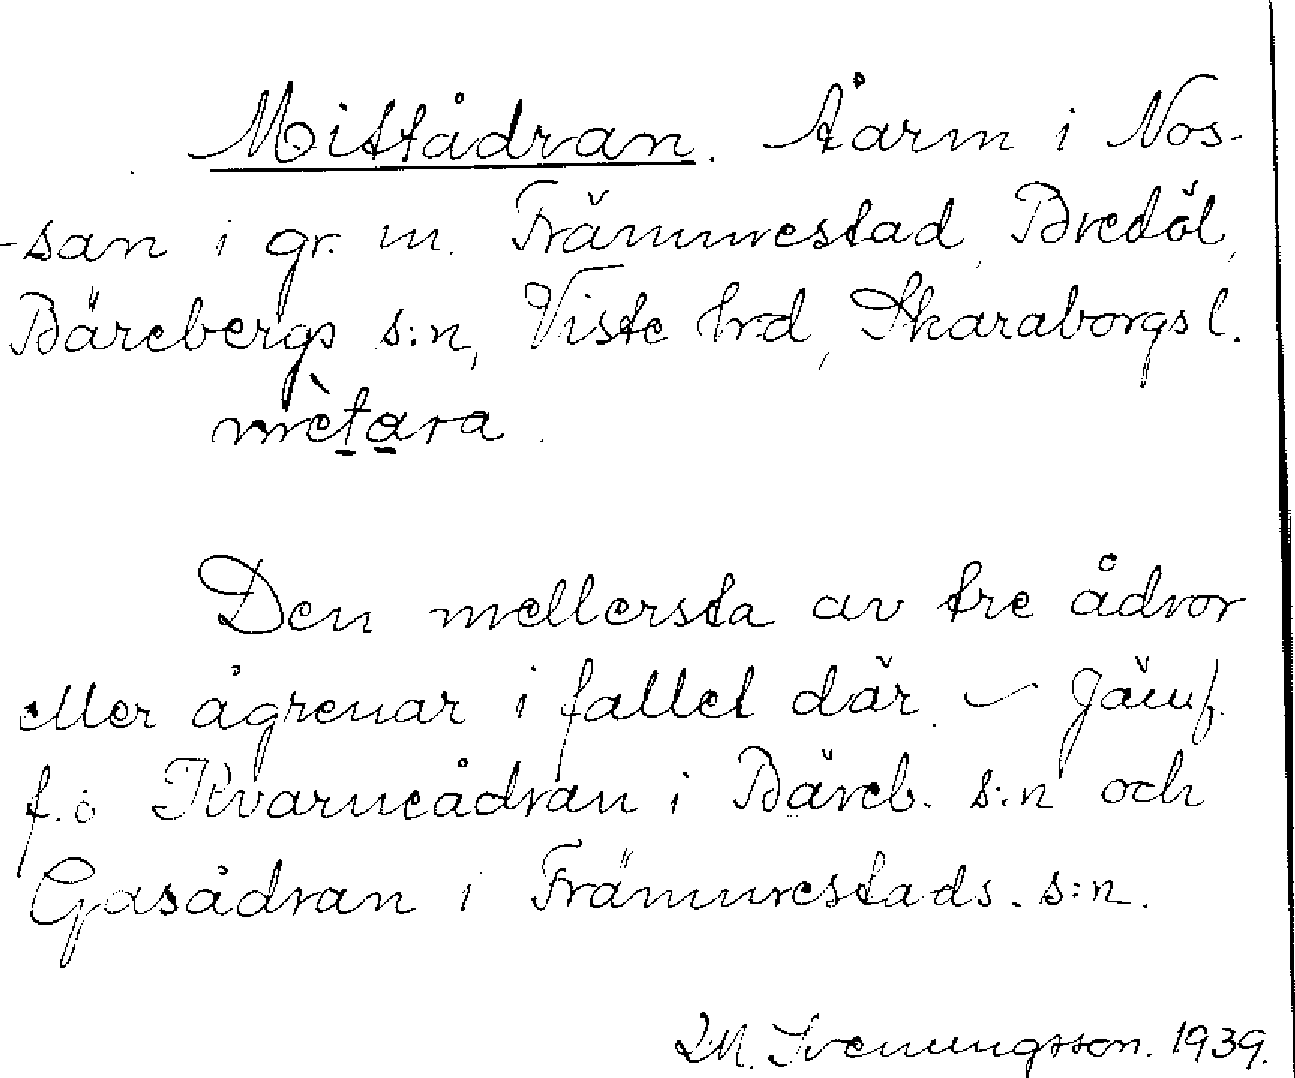 Mittådran. Åarm i Nos-
-san i gr. m. Främmestad, Bredöl,
Bärebergs s:n, Viste hrd, Skaraborgs l.
mètara.
Den mellersta av tre ådror
eller ågrenar i fallet där. – Jämf.
f. ö Kvarneådran i Bäreb. s:n och
Gasådran i Främmestads. s:n.
M. Svenungsson. 1939.